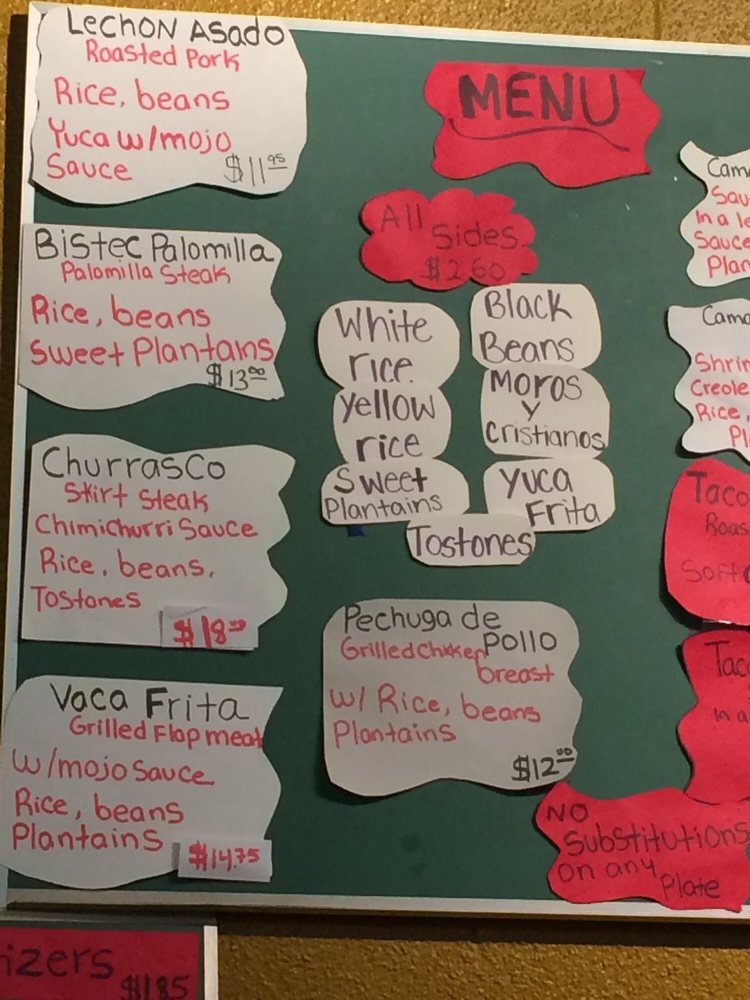 Lechon Asado
Roasted Pork
Rice, beans
Yuca w/mojo
Sauce
$11.95
Bistec Palomilla
Palomilla Steak
Rice, beans
Sweet Plantains
$13.00
Churrasco
Skirt Steak
Chimichurri Sauce
Rice, beans,
Tostones
$18.00
Vaca Frita
Grilled Flap meat
w/mojo Sauce
Rice, beans
Plantains
$14.75
izers
$1.85
MENU
All
Sides
$2.60
White
rice
Yellow
rice
Sweet
Plantains
Black
Beans
Moros
y
Cristianos
Yuca
Frita
Tostones
Pechuga de
Pollo
Grilled Chicken
breast
w/ Rice, beans
Plantains
$12.00
Cam
Sau
In a
Sauce
Plan
Cama
Shrim
Creole
Rice,
Pl
Taco
Roas
Soft
Tac
in a
NO
Substitutions
on any
Plate